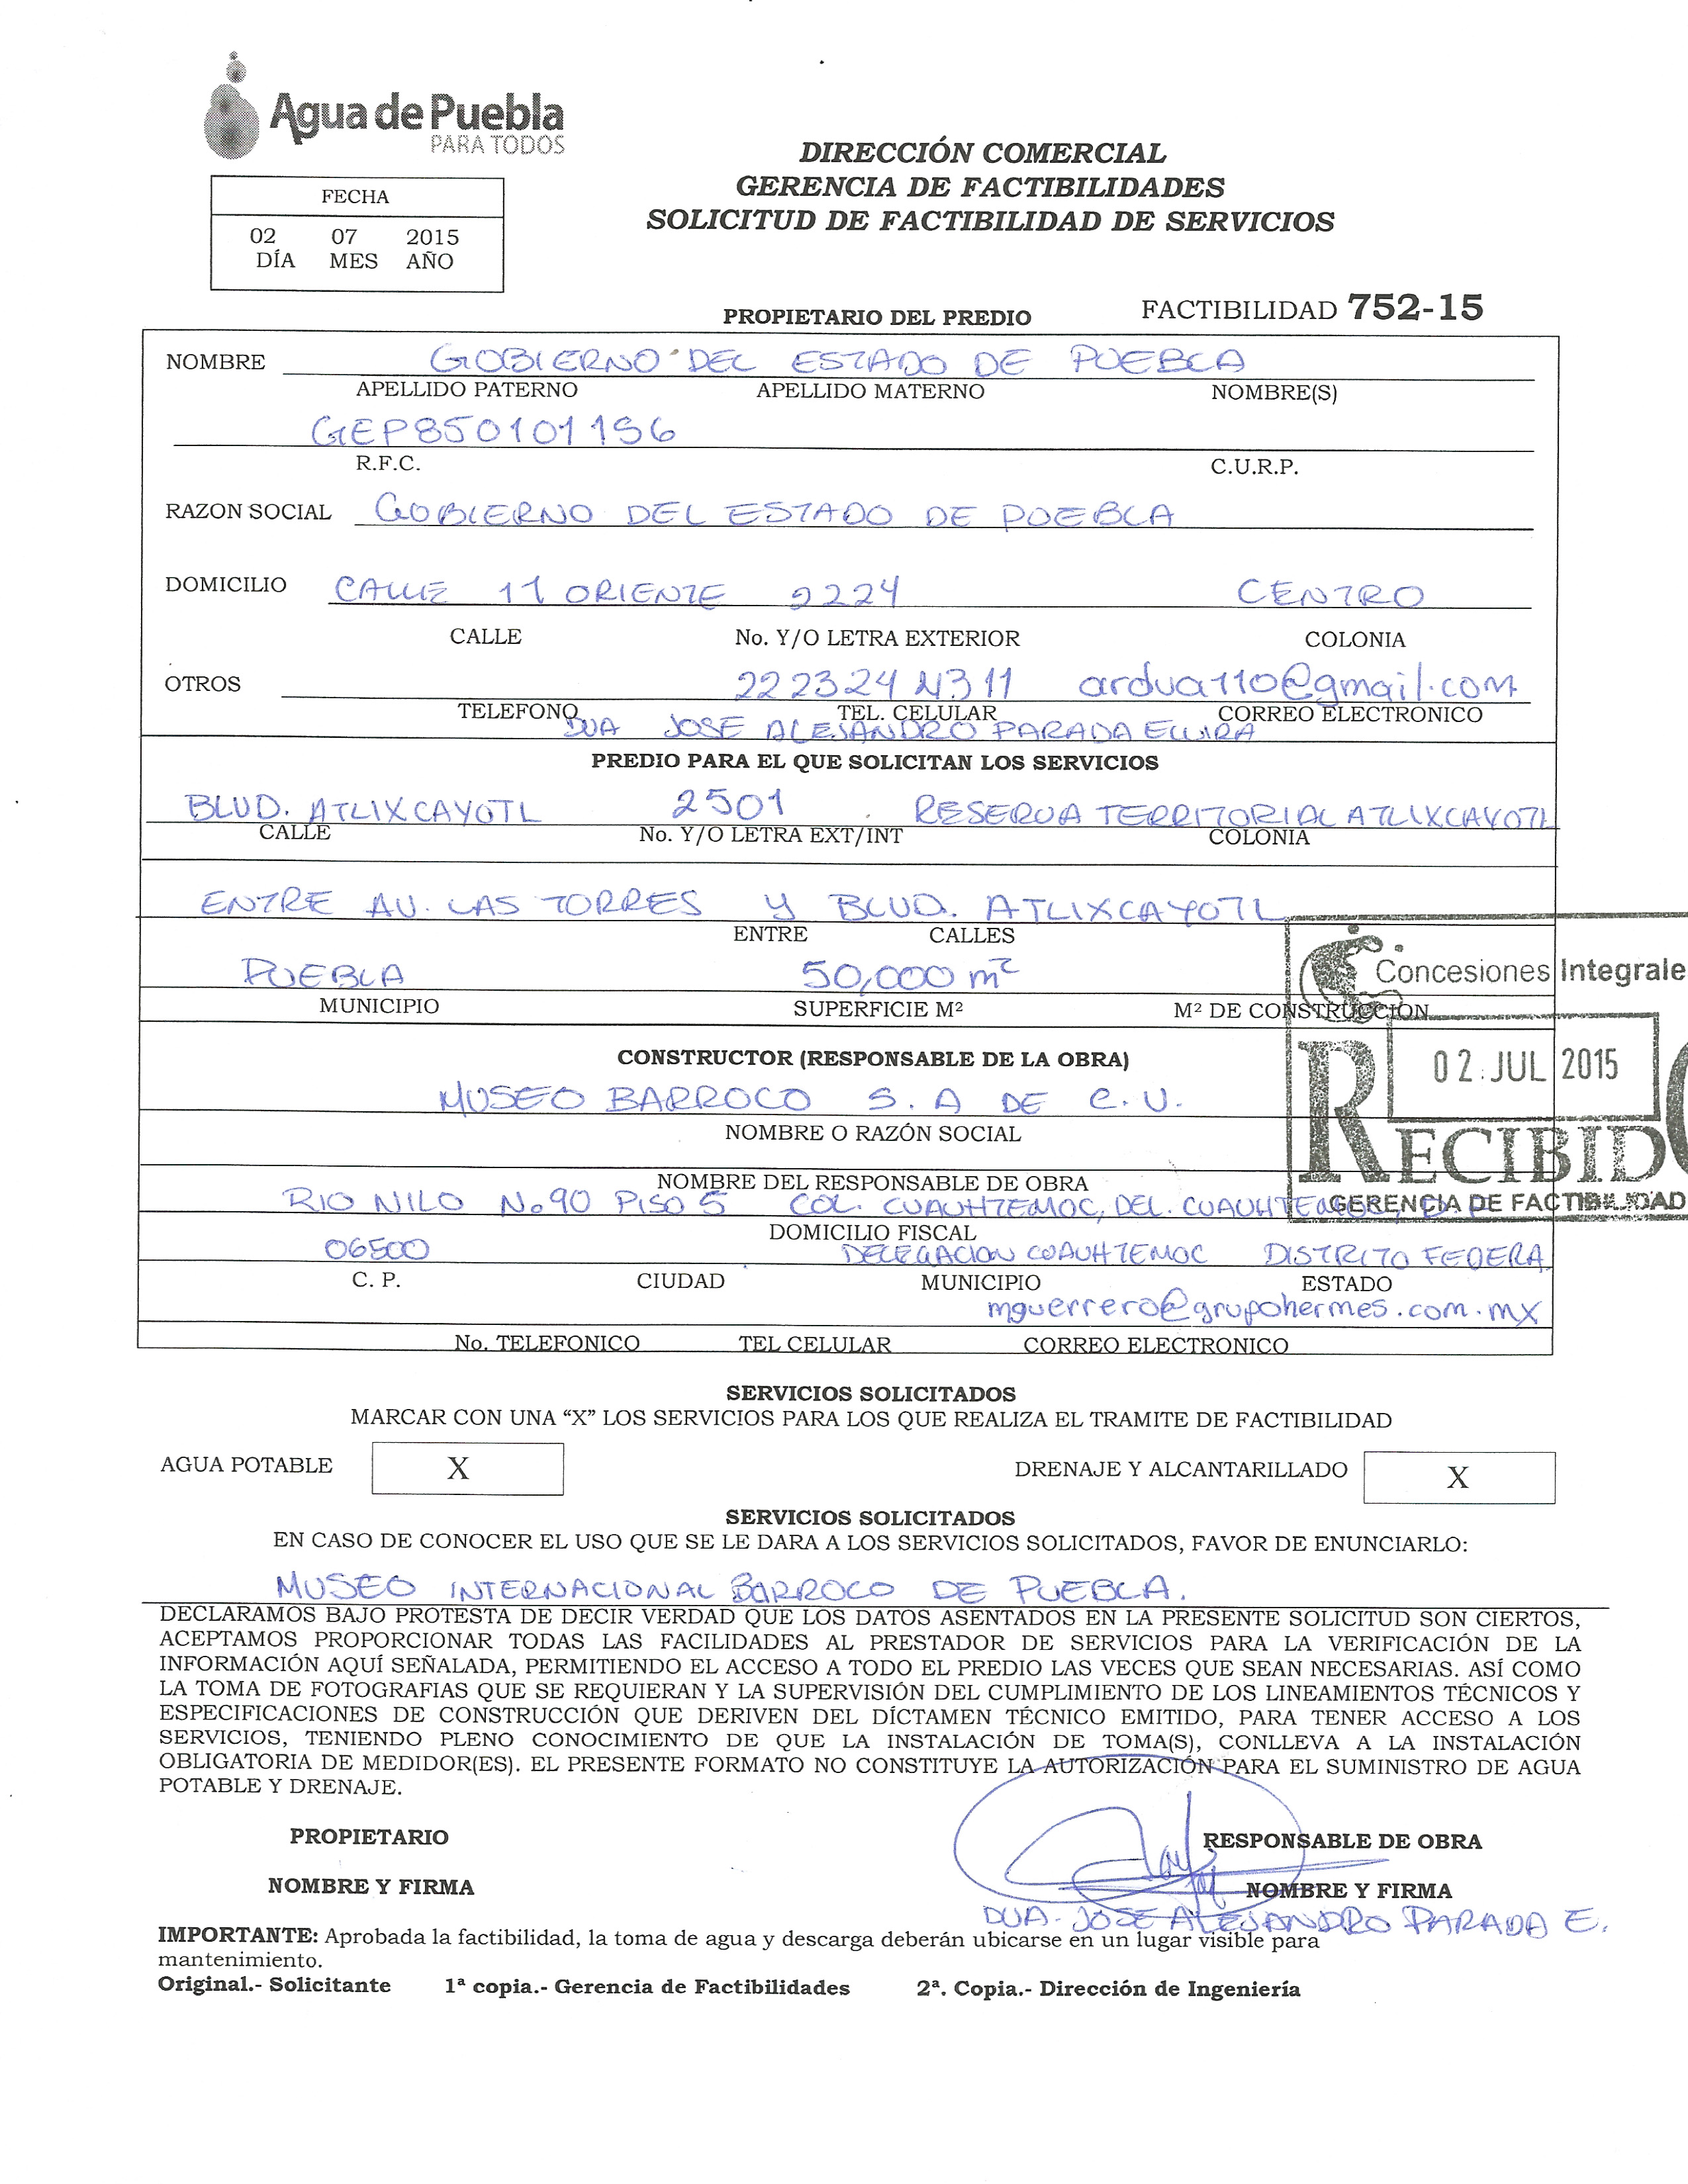 Agua de Puebla
PARA TODOS
DIRECCIÓN COMERCIAL
GERENCIA DE FACTIBILIDADES
SOLICITUD DE FACTIBILIDAD DE SERVICIOS
FECHA
02 07 2015
DÍA MES AÑO
PROPIETARIO DEL PREDIO
FACTIBILIDAD 752-15
NOMBRE GOBIERNO DEL ESTADO DE PUEBLA
APELLIDO PATERNO APELLIDO MATERNO NOMBRE(S)
GEP8501011S6
R.F.C. C.U.R.P.
RAZON SOCIAL GOBIERNO DEL ESTADO DE PUEBLA
DOMICILIO CALLE 11 ORIENTE 2224 CENTRO
CALLE No. Y/O LETRA EXTERIOR COLONIA
OTROS 222324 4311 ardua110@gmail.com
TELEFONO TEL. CELULAR CORREO ELECTRONICO
DUA JOSE ALEJANDRO PARADA ELVIRA
PREDIO PARA EL QUE SOLICITAN LOS SERVICIOS
BLVD. ATLIXCAYOTL 2501 RESERVA TERRITORIAL ATLIXCAYOTL
CALLE No. Y/O LETRA EXT/INT COLONIA
ENTRE AV. LAS TORRES Y BLVD. ATLIXCAYOTL
ENTRE CALLES
PUEBLA 50,000 m²
MUNICIPIO SUPERFICIE M² M² DE CONSTRUCCIÓN
Concesiones Integrale
02 JUL 2015
RECIBIDO
GERENCIA DE FACTIBILIDAD
CONSTRUCTOR (RESPONSABLE DE LA OBRA)
MUSEO BARROCO S.A DE C.V.
NOMBRE O RAZÓN SOCIAL
NOMBRE DEL RESPONSABLE DE OBRA
RIO NILO No 90 PISO 5 COL. CUAUHTEMOC, DEL. CUAUHTEMOC
DOMICILIO FISCAL
06500 DELEGACION CUAUHTEMOC DISTRITO FEDERA
C. P. CIUDAD MUNICIPIO ESTADO
mguerrero@grupohermes.com.mx
No. TELEFONICO TEL CELULAR CORREO ELECTRONICO
SERVICIOS SOLICITADOS
MARCAR CON UNA “X” LOS SERVICIOS PARA LOS QUE REALIZA EL TRAMITE DE FACTIBILIDAD
AGUA POTABLE X DRENAJE Y ALCANTARILLADO X
SERVICIOS SOLICITADOS
EN CASO DE CONOCER EL USO QUE SE LE DARA A LOS SERVICIOS SOLICITADOS, FAVOR DE ENUNCIARLO:
MUSEO INTERNACIONAL BARROCO DE PUEBLA.
DECLARAMOS BAJO PROTESTA DE DECIR VERDAD QUE LOS DATOS ASENTADOS EN LA PRESENTE SOLICITUD SON CIERTOS,
ACEPTAMOS PROPORCIONAR TODAS LAS FACILIDADES AL PRESTADOR DE SERVICIOS PARA LA VERIFICACIÓN DE LA
INFORMACIÓN AQUÍ SEÑALADA, PERMITIENDO EL ACCESO A TODO EL PREDIO LAS VECES QUE SEAN NECESARIAS. ASÍ COMO
LA TOMA DE FOTOGRAFIAS QUE SE REQUIERAN Y LA SUPERVISIÓN DEL CUMPLIMIENTO DE LOS LINEAMIENTOS TÉCNICOS Y
ESPECIFICACIONES DE CONSTRUCCIÓN QUE DERIVEN DEL DÍCTAMEN TÉCNICO EMITIDO, PARA TENER ACCESO A LOS
SERVICIOS, TENIENDO PLENO CONOCIMIENTO DE QUE LA INSTALACIÓN DE TOMA(S), CONLLEVA A LA INSTALACIÓN
OBLIGATORIA DE MEDIDOR(ES). EL PRESENTE FORMATO NO CONSTITUYE LA AUTORIZACIÓN PARA EL SUMINISTRO DE AGUA
POTABLE Y DRENAJE.
PROPIETARIO RESPONSABLE DE OBRA
NOMBRE Y FIRMA NOMBRE Y FIRMA
DUA. JOSE ALEJANDRO PARADA E.
IMPORTANTE: Aprobada la factibilidad, la toma de agua y descarga deberán ubicarse en un lugar visible para
mantenimiento.
Original.- Solicitante 1ª copia.- Gerencia de Factibilidades 2ª. Copia.- Dirección de Ingeniería